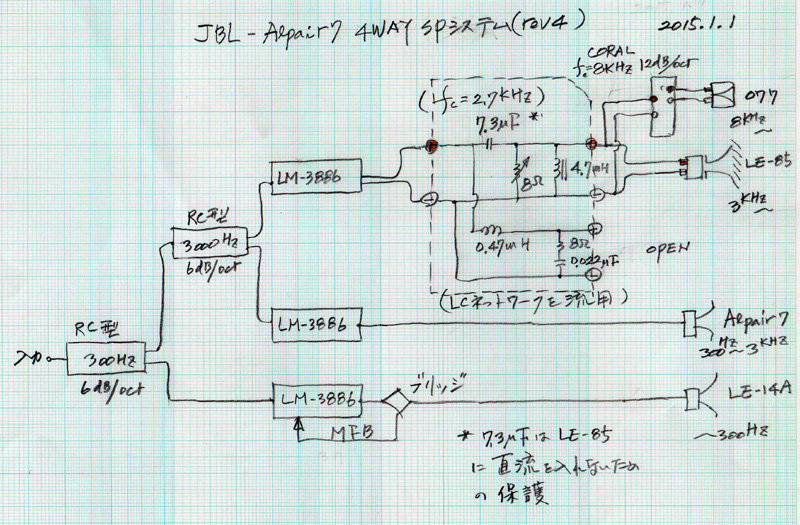 JBL-Alpair7 4WAY SPシステム(rev4)
2015.1.1
CORAL
fc=8KHz 12dB/oct
(fc=2.7KHz)
7.3μF *
077
8KHz~
8Ω
4.7mH
LE-85
3KHz~
LM-3886
RC型
3000Hz
6dB/oct
0.47mH
8Ω
0.022μF
OPEN
(LCネットワークを流用)
RC型
入力
300Hz
6dB/oct
LM-3886
Alpair7
300Hz~3KHz
LM-3886
ブリッジ
LE-14A
~300Hz
MFB
* 7.3μFはLE-85
に直流を入れないため
の保護